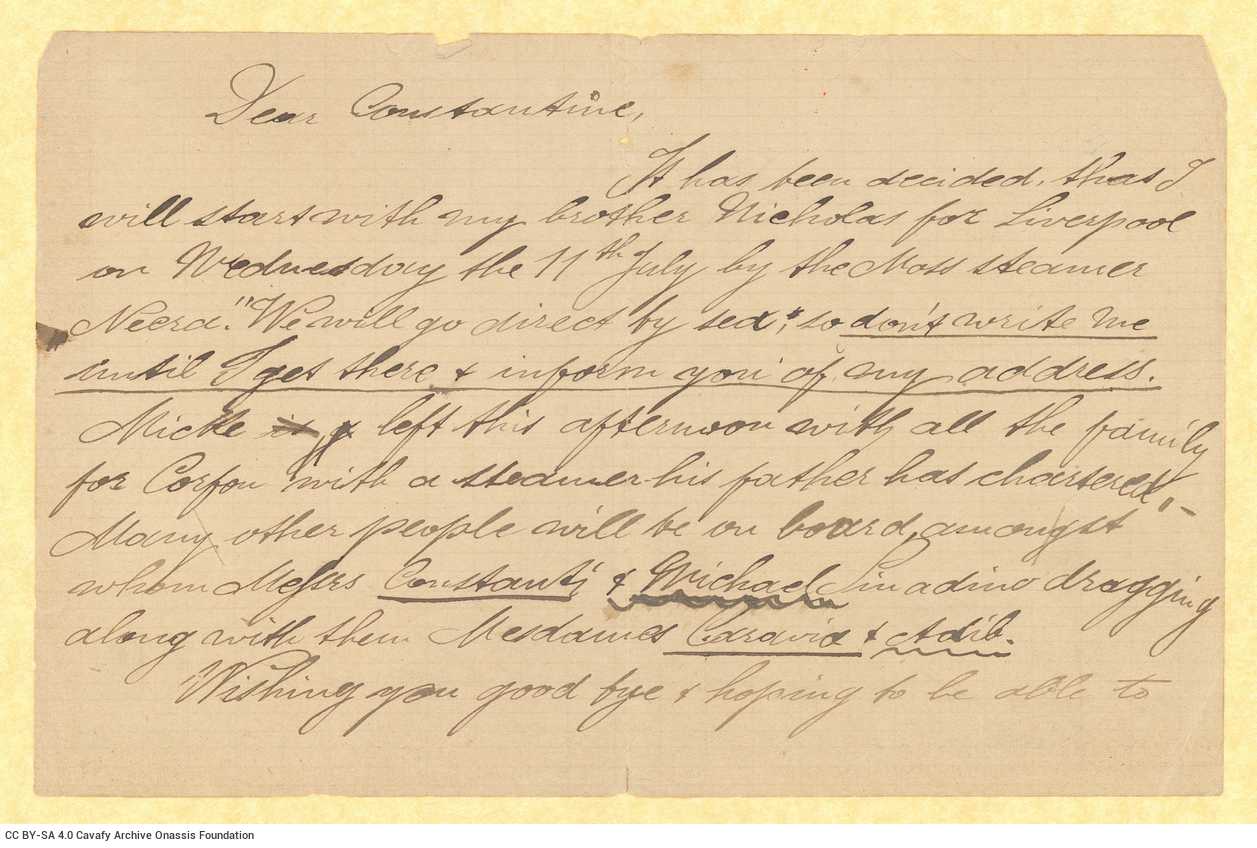 Dear Constantine,
It has been decided, that I
will start with my brother Nicholas for Liverpool
on Wednesday the 11th July by the Moss steamer
Neera." We will go direct by sea, so don't write me
until I get there & inform you of my address.
Micke left this afternoon with all the family
for Corfou with a steamer his father has chartered"-
Many other people will be on board, amongst
whom Messrs Constanti & Michael Sinadino dragging
along with them Mesdames Caravia & Adib.
Wishing you good bye & hoping to be able to
CC BY-SA 4.0 Cavafy Archive Onassis Foundation